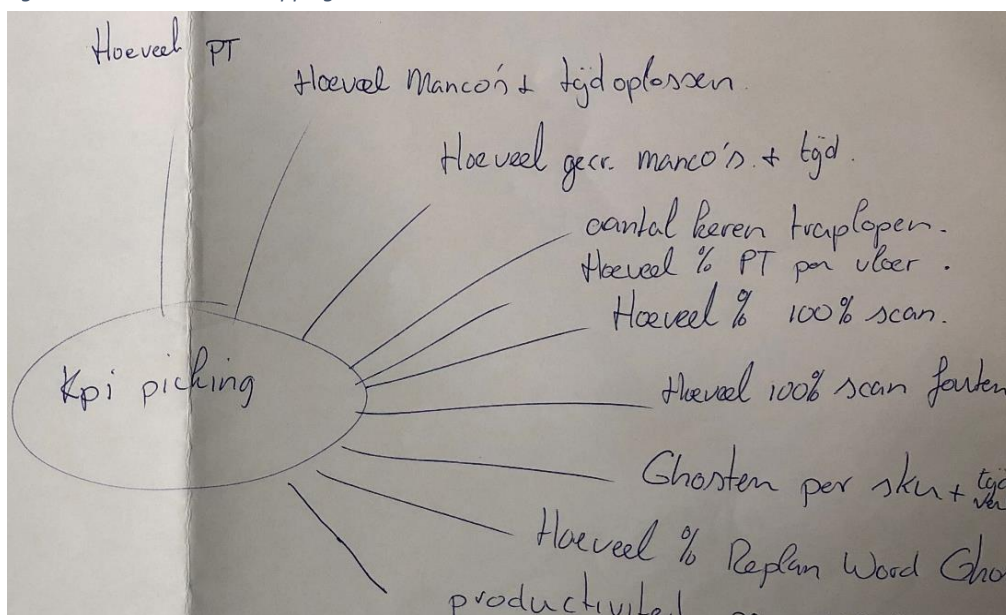 Hoeveel PT
Hoeveel Manco's + tijd oplossen.
Hoeveel gecr. manco's. + tijd.
aantal keren traplopen.
Hoeveel % PT per vloer.
Hoeveel % 100% scan.
Hoeveel 100% scan fouten
Kpi picking
Ghosten per sku + tijd
Hoeveel % Replan Word Gho
productiviteit